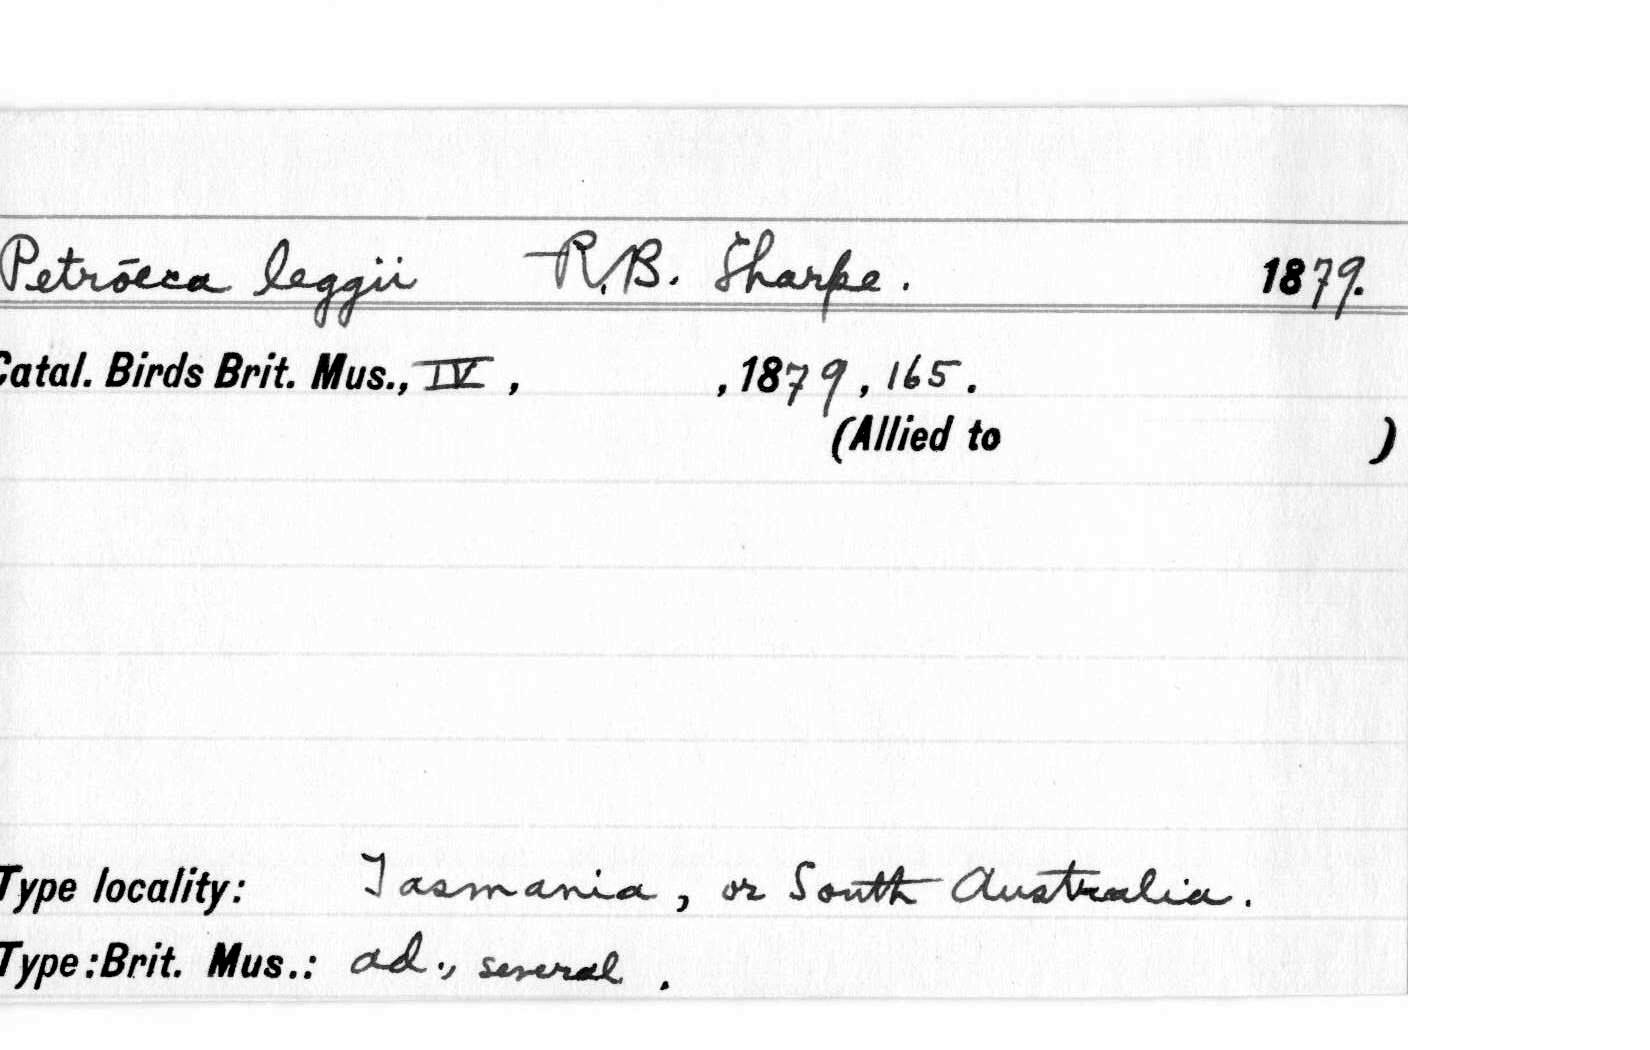 Petrōeca leggii R.B. Sharpe. 1879.
Catal. Birds Brit. Mus., IV, , 1879, 165.
(Allied to )
Type locality: Tasmania, or South Australia.
Type: Brit. Mus.: ad., several.